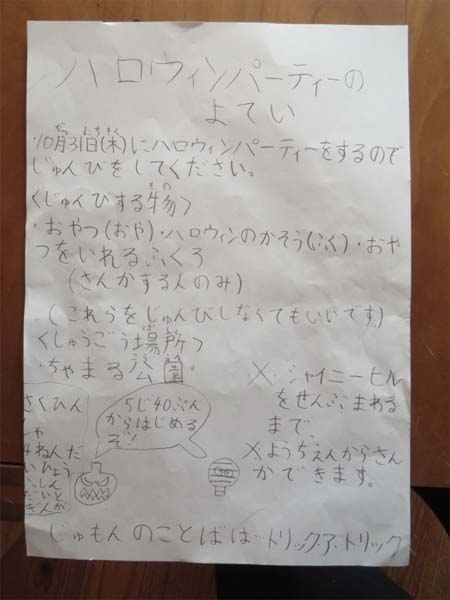 ハロウィンパーティーの
よてい
・10月31日(木)にハロウィンパーティーをするので
じゅんびをしてください。
くじゅんびする物>
・おやつ(おや)・ハロウィンのかそう(ふく)・おや
つをいれるふくろ
(さんかする人のみ)
・(これらをじゅんびしなくてもいいです)
くしゅうごう場所>
・ちゃまる公園。
5じ40ぷん
からはじめる
ぞ!
※・シャイニーヒル
をせんぶまわる
まで、
※ようちえんからさん
かできます。
さくひん
4ねんだ
いひょう
じゅもんのことばは…トリック・ア・トリック